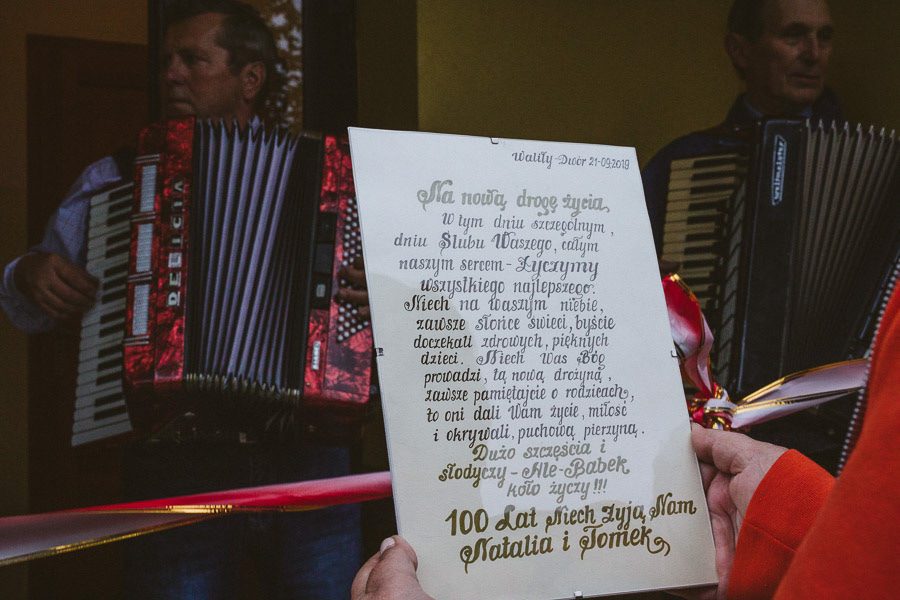 Waliły-Dwór 21-09.2019
Na nową drogę życia,
W tym dniu szczególnym,
dniu Ślubu Waszego, całym
naszym sercem - Życzymy
wszystkiego najlepszego.
Niech na waszym niebie,
zawsze słońce świeci, byście
doczekali zdrowych, pięknych
dzieci. Niech Was Bóg
prowadzi, tą nową drożyną,
zawsze pamiętajcie o rodzicach,
to oni dali Wam życie, miłość
i okrywali, puchową pierzyną.
Dużo szczęścia i
słodyczy - Ale-Babek
koło życzy!!!
100 Lat Niech Żyją Nam
Natalia i Tomek
DELICIA
weltmeister